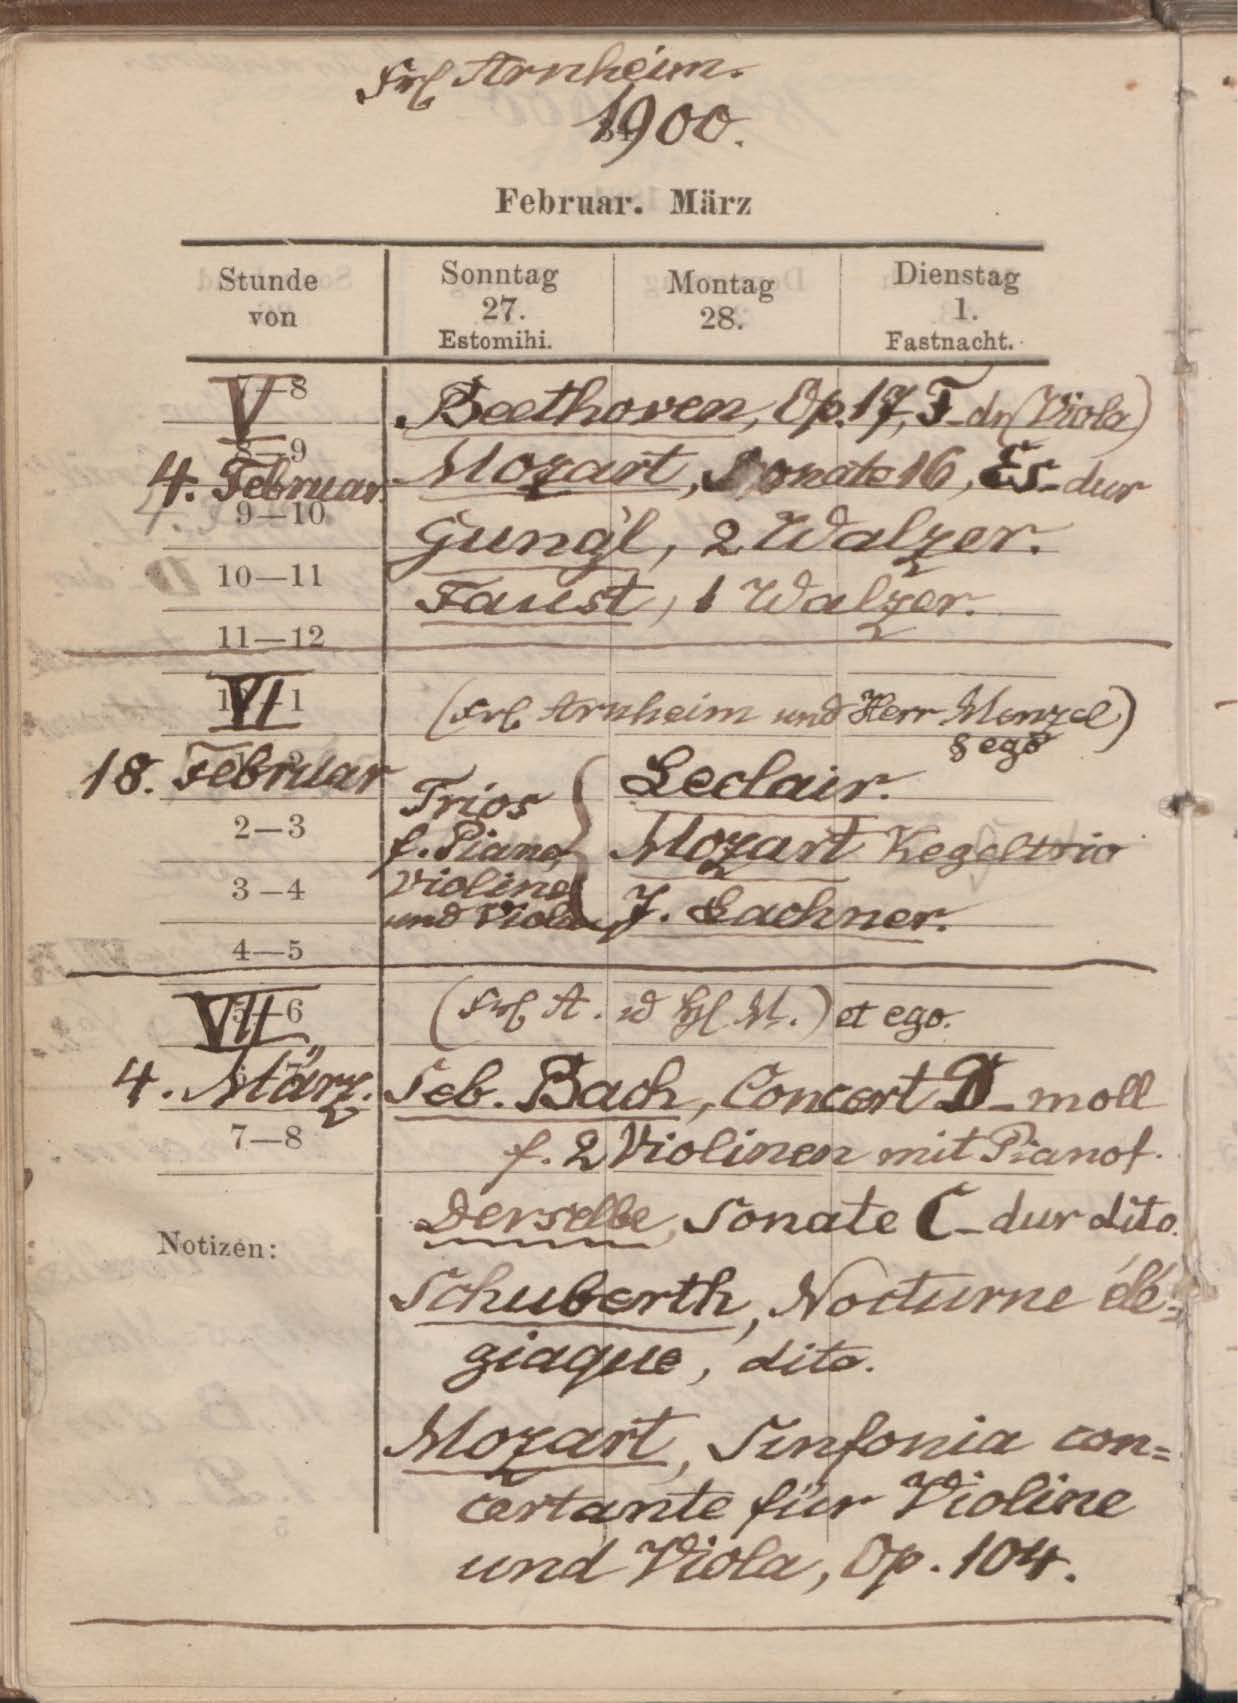 Frl Arnheim.
1900.
Februar. März
Stunde von
Sonntag 27. Estomihi.
Montag 28.
Dienstag 1. Fastnacht.
7—8
V
Beethoven, Op. 17, F-dr (Viola)
8—9
4. Februar
Mozart, Sonate 16, Es-dur
9—10
Gung'l, 2 Walzer.
10—11
Faust, 1 Walzer.
11—12
VI
1
(Frl Arnheim und Herr Menzel)
& ego
18. Februar
Trios
f. Piano,
Violine
und Viola
Leclair.
Mozart Kegeltrio
F. Lachner.
2—3
3—4
4—5
VII
5—6
(Frl A. u H M.) et ego.
4. März.
Seb. Bach, Concert D-moll
f. 2 Violinen mit Pianof.
7—8
Derselbe, Sonate C-dur dito.
Notizen:
Schuberth, Nocturne élé-
giaque, dito.
Mozart, Sinfonia con=
certante für Violine
und Viola, Op. 104.